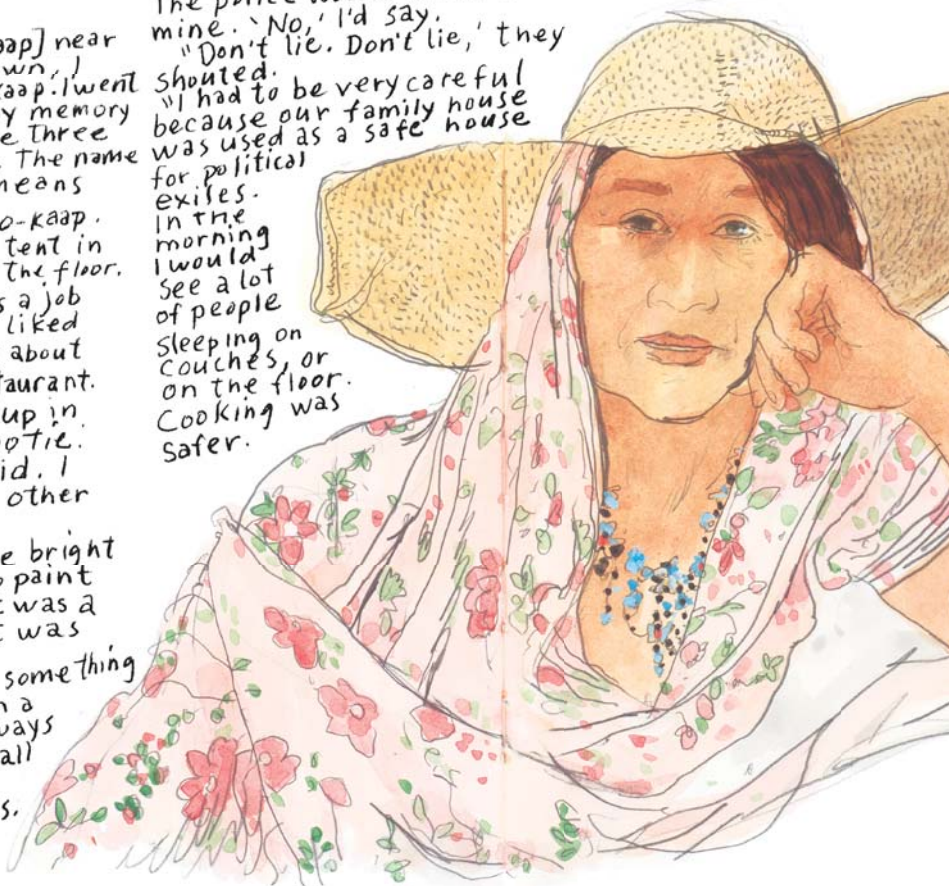 aap] near
wn, I
aap. I went
y memory
e three
. The name
means
o-kaap.
tent in
the floor.
s a job
liked
about
taurant.
up in
otie.
id. I
other
e bright
paint
was a
was
something
n a
ways
all
s.
The police
mine. 'No,' I'd say.
"Don't lie. Don't lie,' they
shouted.
"I had to be very careful
because our family house
was used as a safe house
for political
exiles.
In the
morning
I would
see a lot
of people
sleeping on
couches, or
on the floor.
Cooking was
safer.